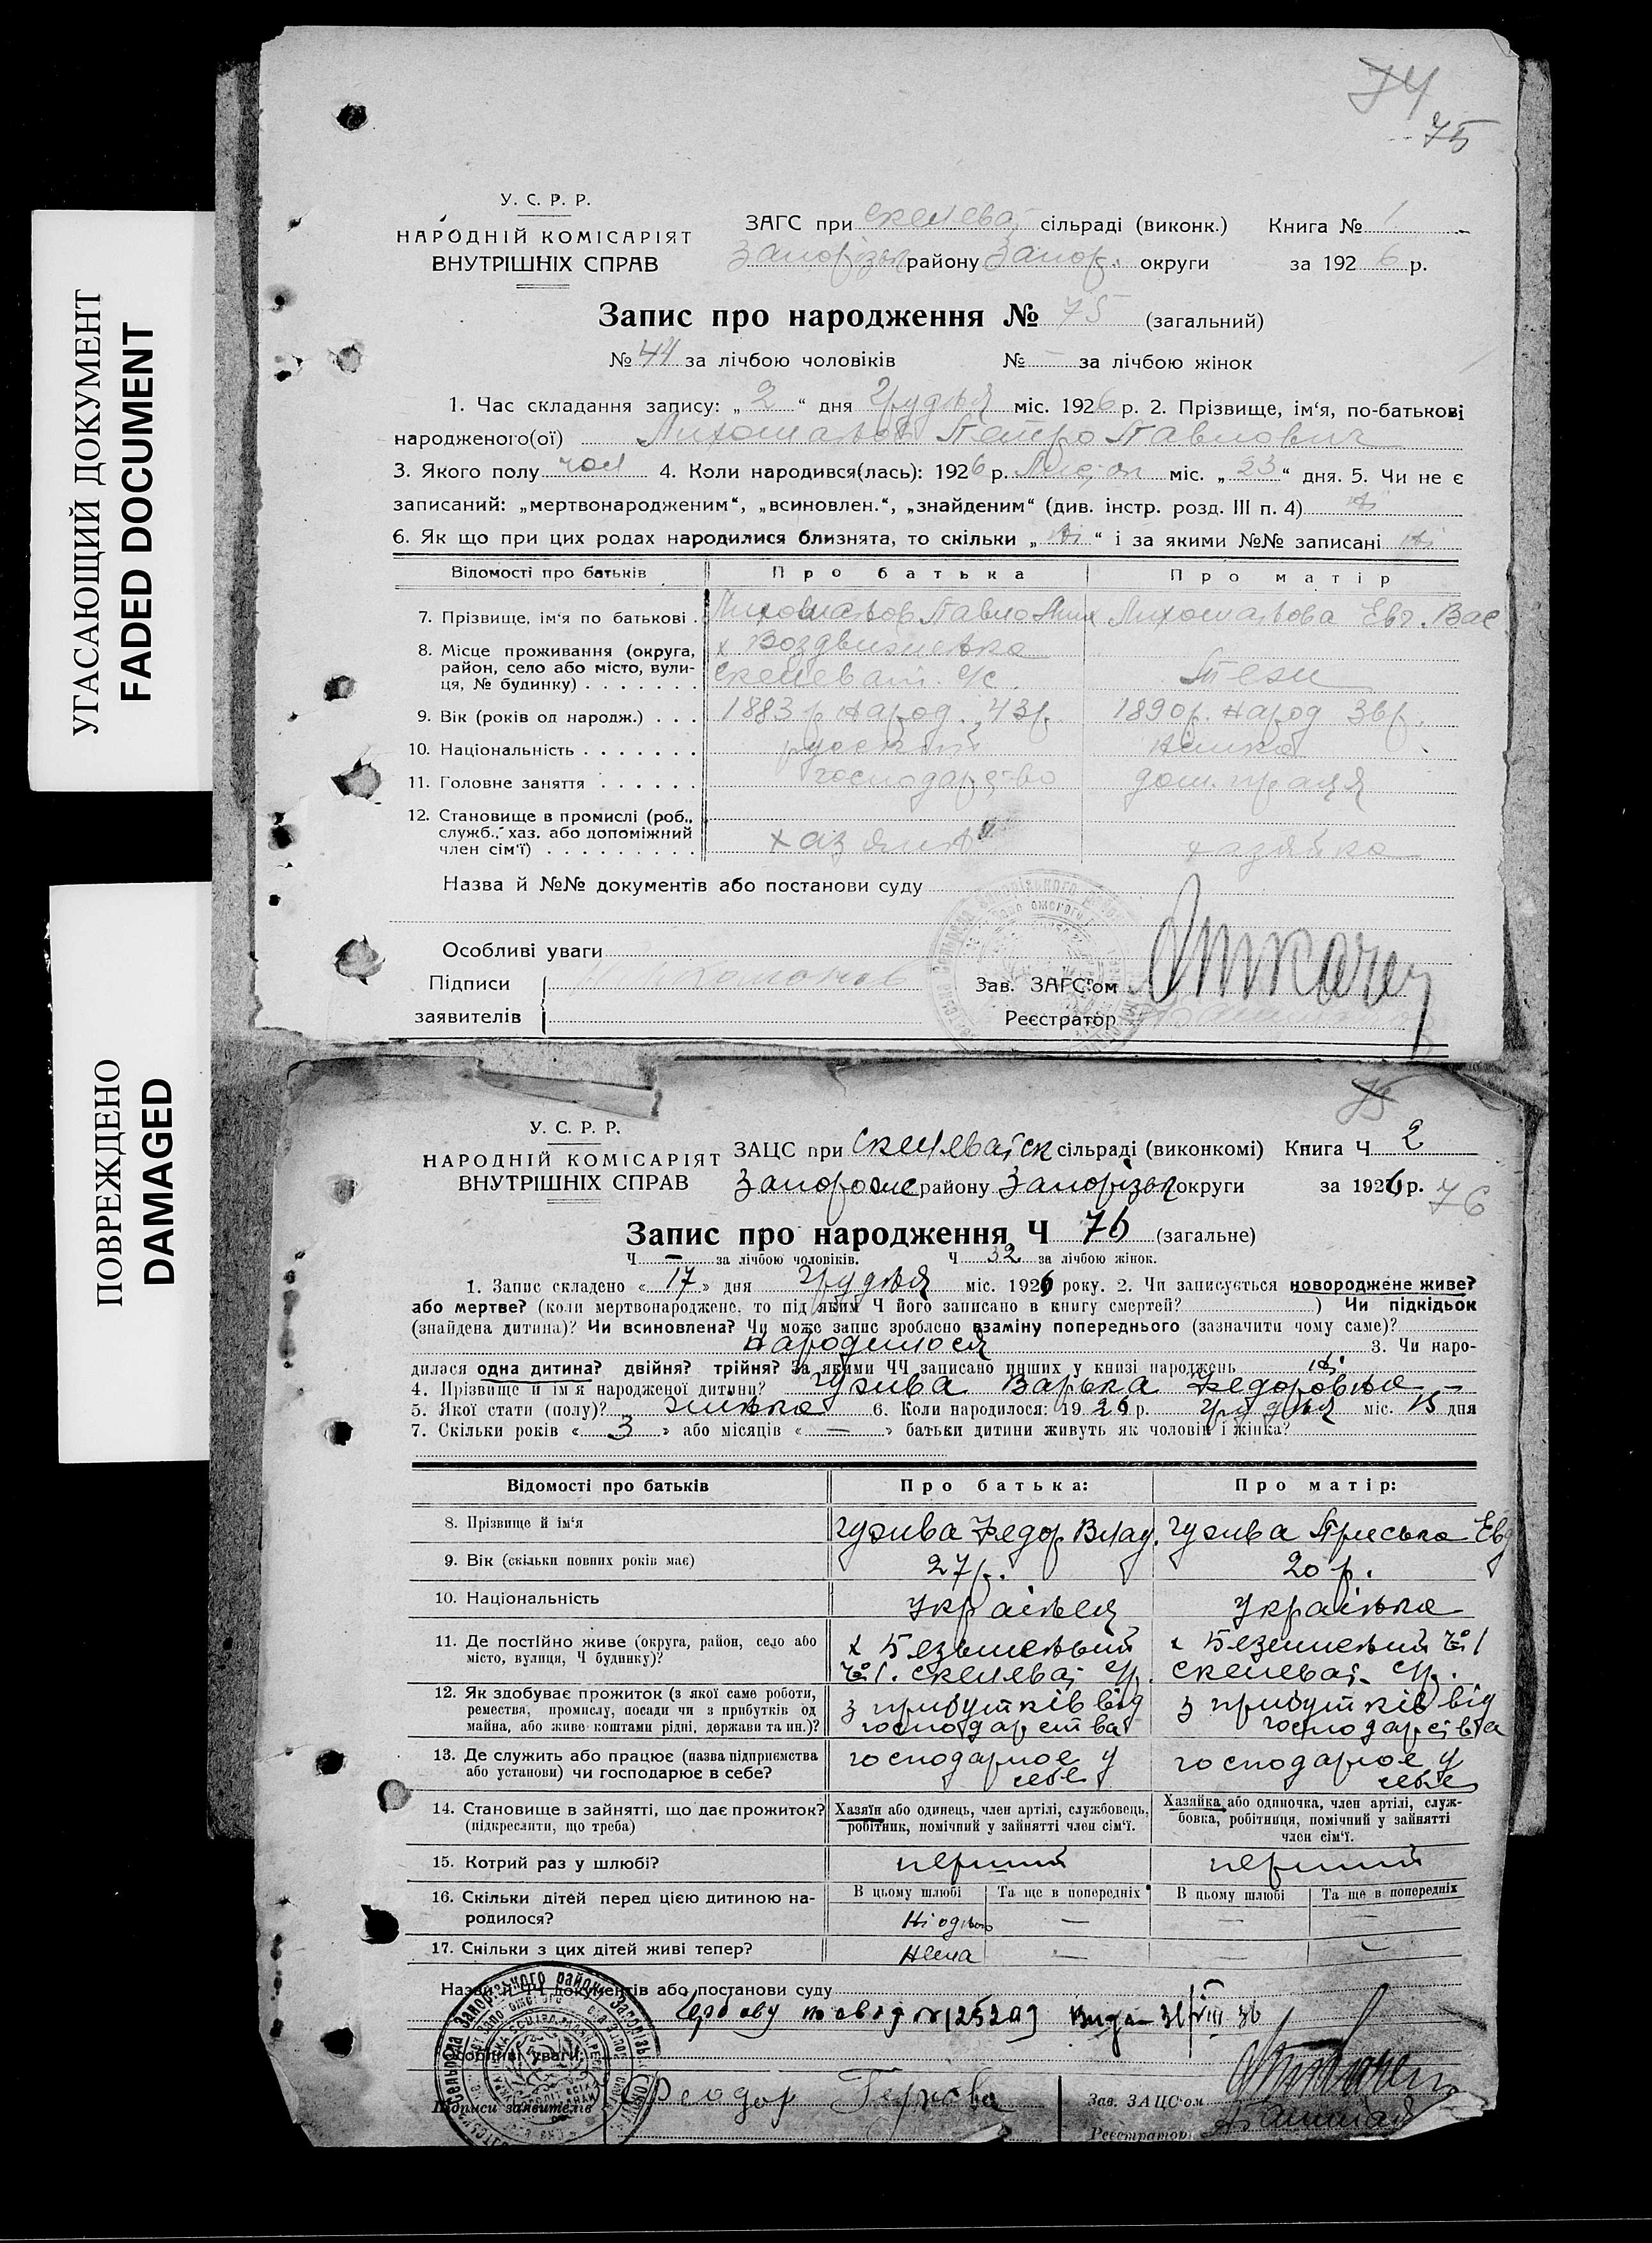 УГАСАЮЩИЙ ДОКУМЕНТ
FADED DOCUMENT
ПОВРЕЖДЕНО
DAMAGED
74
75
У. С. Р. Р.
НАРОДНІЙ КОМІСАРІЯТ
ВНУТРІШНІХ СПРАВ
ЗАГС при Скелеват сільраді (виконк.) Книга № 1
Запорізьк району Запор. округи за 1926 р.
Запис про народження № 75 (загальний)
№ 44 за лічбою чоловіків № — за лічбою жінок
1. Час складання запису: „ 2 “ дня Грудня міс. 1926 р. 2. Прізвище, ім‘я, по-батькові
народженого(ої) Петро Павлович
3. Якого полу чол 4. Коли народився(лась): 1926 р. міс. „ 23 “ дня. 5. Чи не є
записаний: „мертвонародженим“, „всиновлен.“, „знайденим“ (див. інстр. розд. III п. 4) ні
6. Як що при цих родах народилися близнята, то скільки „ ні “ і за якими №№ записані ні
Відомості про батьків Про батька Про матір
7. Прізвище, ім‘я по батькові . Павло Мих Евг. Вас
8. Місце проживання (округа, х Воздвиженка
район, село або місто, вули- Скелеват. с/с
ця, № будинку) . . . . . . .
9. Вік (років од народж.) . . . 1883 р народ. 43 р. 1890 р. народ 36 р.
10. Національність . . . . . . . руський німка
11. Головне заняття . . . . . . господарство дом. праця
12. Становище в промислі (роб.,
служб., хаз. або допоміжний хазяїн хазяйка
член сім‘ї) . . . . . . . . .
Назва й №№ документів або постанови суду
Особливі уваги
Підписи Зав. ЗАГС‘ом
заявителів Реєстратор
75
76
У. С. Р. Р.
НАРОДНІЙ КОМІСАРІЯТ
ВНУТРІШНІХ СПРАВ
ЗАЦС при Скелеватск сільраді (виконкомі) Книга Ч 2
Запорожс району Запорізьк округи за 1926 р.
Запис про народження Ч 76 (загальне)
Ч — за лічбою чоловіків. Ч 32 за лічбою жінок.
1. Запис складено « 17 » дня Грудня міс. 1926 року. 2. Чи записується новороджене живе?
або мертве? (коли мертвонароджене, то під яким Ч його записано в книгу смертей? ) Чи підкідьок
(знайдена дитина)? Чи всиновлена? Чи може запис зроблено взаміну попереднього (зазначити чому саме)?
народилося 3. Чи наро-
дилася одна дитина? двійня? трійня? За якими ЧЧ записано инших у книзі народжень ні
4. Прізвище й ім‘я народженої дитини? Гужва Варька Федоровна —
5. Якої стати (полу)? жінка 6. Коли народилося: 1926 р. Грудня міс. 15 дня
7. Скільки років « 3 » або місяців « — » батьки дитини живуть як чоловік і жінка?
Відомості про батьків Про батька: Про матір:
8. Прізвище й ім‘я Гужва Федор Влад. Гужва Приська Евд
9. Вік (скільки повних років має) 27 р. 20 р.
10. Національність Українец Українка
11. Де постійно живе (округа, район, село або х Безіменный х Безіменый № 1
місто, вулиця, Ч будинку)? № 1. Скелеват. с/р. Скелеват. с/р.
12. Як здобуває прожиток (з якої саме роботи, з прибутків від з прибутків від
ремества, промислу, посади чи з прибутків од господарства господарства
майна, або живе коштами рідні, держави та ин.)?
13. Де служить або працює (назва підприємства господарює у господарює у
або установи) чи господарює в себе? себе себе
14. Становище в зайнятті, що дає прожиток? Хазяїн або одинець, член артілі, службовець, Хазяйка або одиночка, член артілі, служ-
(підкреслити, що треба) робітник, помічний у зайнятті член сім‘ї. бовка, робітниця, помічний у зайнятті
член сім‘ї.
15. Котрий раз у шлюбі? перший перший
16. Скільки дітей перед цією дитиною на- В цьому шлюбі Та ще в попередніх В цьому шлюбі Та ще в попередніх
родилося? Ні одного — — —
17. Скільки з цих дітей живі тепер? Нема — — —
Назви й ЧЧ документів або постанови суду
Особливі уваги:
Підписи заявителів Феодор Гужва Зав. ЗАЦС‘ом
Реєстратор